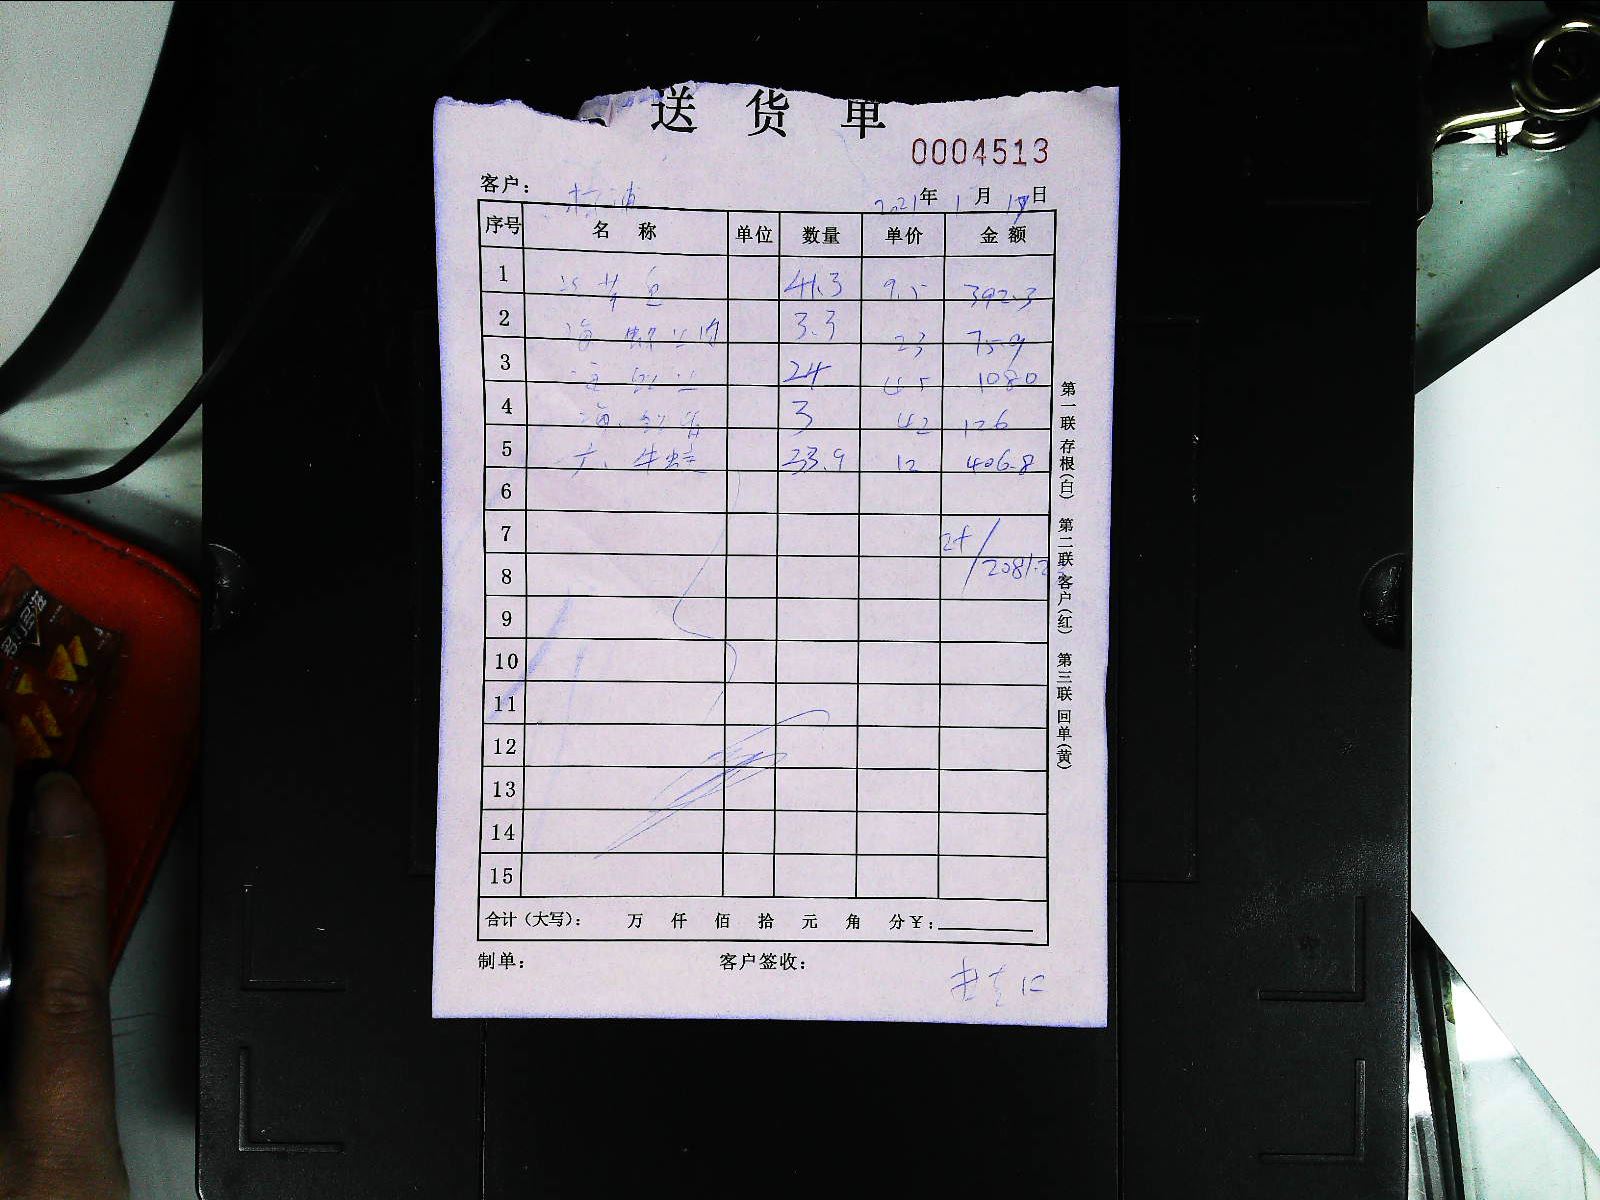 送货单
0004513
客户： 杨浦 2021年 1月 17日
序号 名称 单位 数量 单价 金额
1 鱼 41.3 9.5 392.3
2 海 3.3 23 75.9
3 24 45 1080
4 海 3 42 126
5 牛蛙 33.9 12 406.8
6
7 计
8 2081.2
9
10
11
12
13
14
15
合计（大写）： 万 仟 佰 拾 元 角 分￥：
制单： 客户签收：
第一联存根（白） 第二联客户（红） 第三联回单（黄）